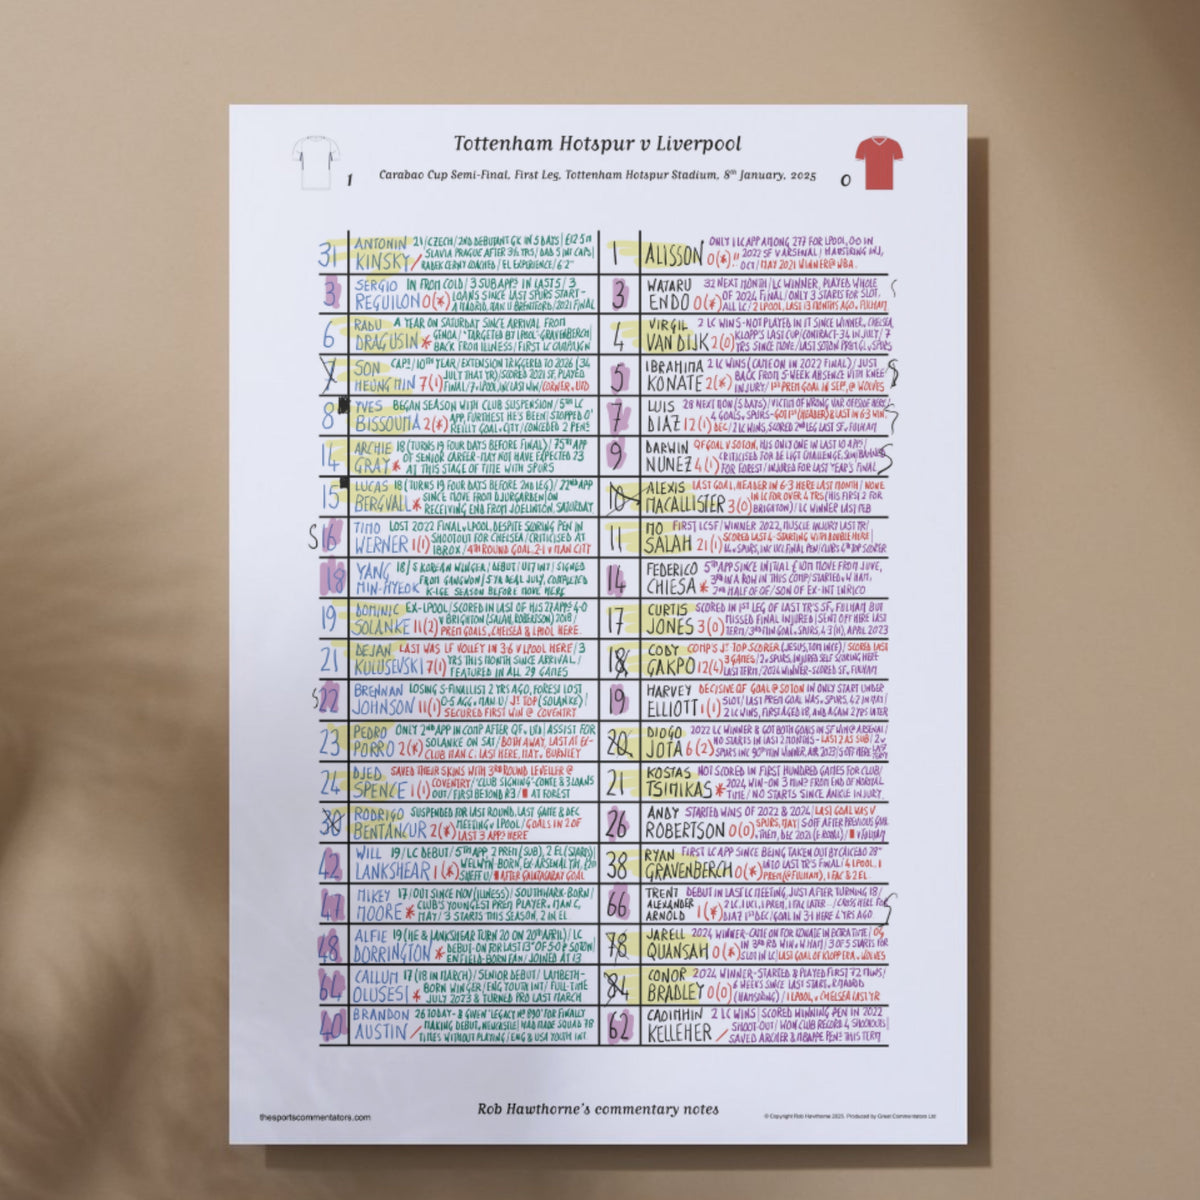 Tottenham Hotspur v Liverpool
1
Carabao Cup Semi-Final, First Leg, Tottenham Hotspur Stadium, 8th January, 2025
0
31 ANTONIN KINSKY
21/CZECH/2ND DEBUTANT GK IN 5 DAYS/£12.5M
SLAVIA PRAGUE AFTER 3½ YRS/DAD 5 INT CAPS/
RADEK CERNY COACHED/EL EXPERIENCE/6'2"
3 SERGIO REGUILON 0(*)
IN FROM COLD/3 SUB APPS IN LAST 5/3
LOANS SINCE LAST SPURS START-
A MADRID, MAN U BRENTFORD/2021 FINAL
6 RADU DRAGUSIN *
A YEAR ON SATURDAY SINCE ARRIVAL FROM
GENOA/'TARGETED BY LPOOL'-GRAVENBERCH/
BACK FROM ILLNESS/FIRST LC CAMPAIGN
7 SON HEUNG MIN 7(1)
CAPT/10TH YEAR/EXTENSION TRIGGERED TO 2026 (34
JULY THAT YR)/SCORED 2021 SF, PLAYED
FINAL/7 v LPOOL, INC LAST WIN/CORNER v UTD
8 YVES BISSOUMA 2(*)
BEGAN SEASON WITH CLUB SUSPENSION/5TH LC
APP, FURTHEST HE'S BEEN/STOPPED O'
REILLY GOAL v CITY/CONCEDED 2 PENS
14 ARCHIE GRAY *
18 (TURNS 19 FOUR DAYS BEFORE FINAL)/75TH APP
OF SENIOR CAREER-MAY NOT HAVE EXPECTED 23
AT THIS STAGE OF TIME WITH SPURS
15 LUCAS BERGVALL *
18 (TURNS 19 FOUR DAYS BEFORE 2ND LEG)/22ND APP
SINCE MOVE FROM DJURGARDEN/ON
RECEIVING END FROM JOELINTON, SATURDAY
S 16 TIMO WERNER 1(1)
LOST 2022 FINAL v LPOOL, DESPITE SCORING PEN IN
SHOOTOUT FOR CHELSEA/CRITICISED AT
IBROX/4TH ROUND GOAL, 2-1 v MAN CITY
18 YANG MIN-HYEOK
18/S KOREAN WINGER/DEBUT/U17 INT/SIGNED
FROM GANGWON/5 YR DEAL JULY, COMPLETED
K-LGE SEASON BEFORE MOVE HERE
19 DOMINIC SOLANKE 11(2)
EX-LPOOL/SCORED IN LAST OF HIS 27 APPS 4-0
v BRIGHTON (SALAH, ROBERTSON) 2018/
PREM GOALS, CHELSEA & LPOOL HERE
21 DEJAN KULUSEVSKI 7(1)
LAST WAS LF VOLLEY IN 3-6 v LPOOL HERE/3
YRS THIS MONTH SINCE ARRIVAL/
FEATURED IN ALL 29 GAMES
S 22 BRENNAN JOHNSON 11(1)
LOSING S-FINALLIST 2 YRS AGO, FOREST LOST
0-5 AGG v MAN U/JT TOP (SOLANKE)/
SECURED FIRST WIN @ COVENTRY
23 PEDRO PORRO 2(*)
ONLY 2ND APP IN COMP AFTER QF v UTD/ASSIST FOR
SOLANKE ON SAT/BOTH AWAY, LAST AT ET-
CLUB MAN C. LAST HERE, MAY v BURNLEY
24 DJED SPENCE 1(1)
SAVED THEIR SKINS WITH 3RD ROUND LEVELLER @
COVENTRY/'CLUB SIGNING'-CONTE & 3 LOANS
OUT/FIRST BEYOND R3/AT FOREST
30 RODRIGO BENTANCUR 2(*)
SUSPENDED FOR LAST ROUND, LAST GAME & DEC
MEETING v LPOOL/GOALS IN 2 OF
LAST 3 APPS HERE
42 WILL LANKSHEAR 1(*)
19/LC DEBUT/5TH APP, 2 PREM (SUB), 2 EL (STARTS)/
WELWYN-BORN, EX-ARSENAL YTH, £2M
SHEFF U/AFTER GALATASARAY GOAL
47 MIKEY MOORE *
17/OUT SINCE NOV (ILLNESS)/SOUTHWARK-BORN/
CLUB'S YOUNGEST PREM PLAYER v MAN C,
MAY/3 STARTS THIS SEASON, 2 IN EL
48 ALFIE DORRINGTON *
19 (HE & LANKSHEAR TURN 20 ON 20TH APRIL)/LC
DEBUT-ON FOR LAST 13" OF 5-0 @ SOTON/
ENFIELD-BORN FAN/JOINED AT 13
64 CALLUM OLUSESI *
17 (18 IN MARCH)/SENIOR DEBUT/LAMBETH-
BORN WINGER/ENG YOUTH INT/FULL-TIME
JULY 2023 & TURNED PRO LAST MARCH
40 BRANDON AUSTIN
26 TODAY-& GIVEN 'LEGACY Nº 890' FOR FINALLY
MAKING DEBUT, NEWCASTLE/HAD MADE SQUAD 78
TIMES WITHOUT PLAYING/ENG & USA YOUTH INT
1 ALISSON 0(*)
ONLY 1 LC APP AMONG 277 FOR LPOOL, 0-0 IN
2022 SF v ARSENAL/HAMSTRING INJ,
OCT/MAY 2021 WINNER @ WBA
3 WATARU ENDO 0(*)
32 NEXT MONTH/LC WINNER, PLAYED WHOLE
OF 2024 FINAL/ONLY 3 STARTS FOR SLOT,
ALL LC/2 LPOOL, LAST 13 MONTHS AGO v FULHAM
4 VIRGIL VAN DIJK 2(0)
2 LC WINS-NOT PLAYED IN IT SINCE WINNER v CHELSEA,
KLOPP'S LAST CUP/CONTRACT-34 IN JULY/7
YRS SINCE MOVE/LAST SOTON PREM GL v SPURS
5 IBRAHIMA KONATE 2(*)
2 LC WINS (CAME ON IN 2022 FINAL)/JUST
BACK FROM 5-WEEK ABSENCE WITH KNEE
INJURY/1ST PREM GOAL IN SEP, @ WOLVES
7 LUIS DIAZ 12(1)
28 NEXT MON (5 DAYS)/VICTIM OF WRONG VAR OFFSIDE HERE/
4 GOALS v SPURS-GOT 1ST (HEADER) & LAST IN 6-3 WIN,
DEC/2 LC WINS, SCORED 2ND LEG LAST SF v FULHAM
9 DARWIN NUNEZ 4(1)
QF GOAL v SOTON, HIS ONLY ONE IN LAST 10 APPS/
CRITICISED FOR DE LIGT CHALLENGE, SUN/BANNED
FOR FOREST/INJURED FOR LAST YEAR'S FINAL
10 ALEXIS MACALLISTER 3(0)
LAST GOAL, HEADER IN 6-3 HERE LAST MONTH/NONE
IN LC FOR OVER 4 YRS (HIS FIRST 2 FOR
BRIGHTON)/LC WINNER LAST FEB
11 MO SALAH 21(1)
FIRST LC SF/WINNER 2022, MUSCLE INJURY LAST YR/
SCORED LAST 4-STARTING WITH DOUBLE HERE/
14 v SPURS, INC UCL FINAL PEN/CLUB'S 4TH TOP SCORER
14 FEDERICO CHIESA *
5TH APP SINCE INITIAL £10M MOVE FROM JUVE,
3RD IN A ROW IN THIS COMP/STARTED v W HAM,
2ND HALF OF QF/SON OF EX-INT ENRICO
17 CURTIS JONES 3(0)
SCORED IN 1ST LEG OF LAST YR'S SF, FULHAM BUT
MISSED FINAL INJURED/SENT OFF HERE LAST
TERM/3RD MIN GOAL v SPURS, 4-3 (H), APRIL 2023
18 CODY GAKPO 12(4)
COMP'S JT TOP SCORER (JESUS, TOM INCE)/SCORED LAST
3 GAMES/2 v SPURS, INJURED SELF SCORING HERE
LAST TERM/2024 WINNER-SCORED SF v FULHAM
19 HARVEY ELLIOTT 1(1)
DECISIVE QF GOAL @ SOTON IN ONLY START UNDER
SLOT/LAST PREM GOAL WAS v SPURS, 4-2 IN MAY/
2 LC WINS, FIRST AGED 18, AND AGAIN 2 YRS LATER
20 DIOGO JOTA 6(2)
2022 LC WINNER & GOT BOTH GOALS IN SF WIN @ ARSENAL/
NO STARTS IN LAST 2 MONTHS-LAST 2 AS SUB/2 v
SPURS INC 90TH MIN WINNER, APR 2023/S OFF HERE LAST TERM
21 KOSTAS TSIMIKAS *
NOT SCORED IN FIRST HUNDRED GAMES FOR CLUB/
2024 WIN-ON 3 MINS FROM END OF NORMAL
TIME/NO STARTS SINCE ANKLE INJURY
26 ANDY ROBERTSON 0(0)
STARTED WINS OF 2022 & 2024/LAST GOAL WAS v
SPURS, MAY/S OFF AFTER PREVIOUS GOAL
v THEM, DEC 2021 (E ROYAL)/v FULHAM
38 RYAN GRAVENBERCH 0(*)
FIRST LC APP SINCE BEING TAKEN OUT BY CAICEDO 28"
INTO LAST YR'S FINAL/4 LPOOL, 1
PREM (@ FULHAM), 1 FAC & 2 EL
66 TRENT ALEXANDER ARNOLD 1(*)
DEBUT IN LAST LC MEETING, JUST AFTER TURNING 18/
2 LC, 1 UCL, 1 PREM, 1 FAC LATER.../CROSS HERE FOR
DIAZ 1ST DEC/GOAL IN 3-1 HERE 4 YRS AGO
78 JARELL QUANSAH 0(*)
2024 WINNER-CAME ON FOR KONATE IN EXTRA TIME/OG
IN 3RD RD WIN v W HAM/3 OF 5 STARTS FOR
SLOT IN LC/LAST GOAL OF KLOPP ERA v WOLVES
84 CONOR BRADLEY 0(0)
2024 WINNER-STARTED & PLAYED FIRST 72 MINS/
6 WEEKS SINCE LAST START v R MADRID
(HAMSTRING)/1 LPOOL v CHELSEA LAST YR
62 CAOIMHIN KELLEHER
2 LC WINS/SCORED WINNING PEN IN 2022
SHOOT-OUT/WON CLUB RECORD 4 SHOOTOUTS/
SAVED ARCHER & MBAPPE PENS THIS TERM
Rob Hawthorne's commentary notes
thesportscommentators.com
© Copyright Rob Hawthorne 2025. Produced by Great Commentators Ltd